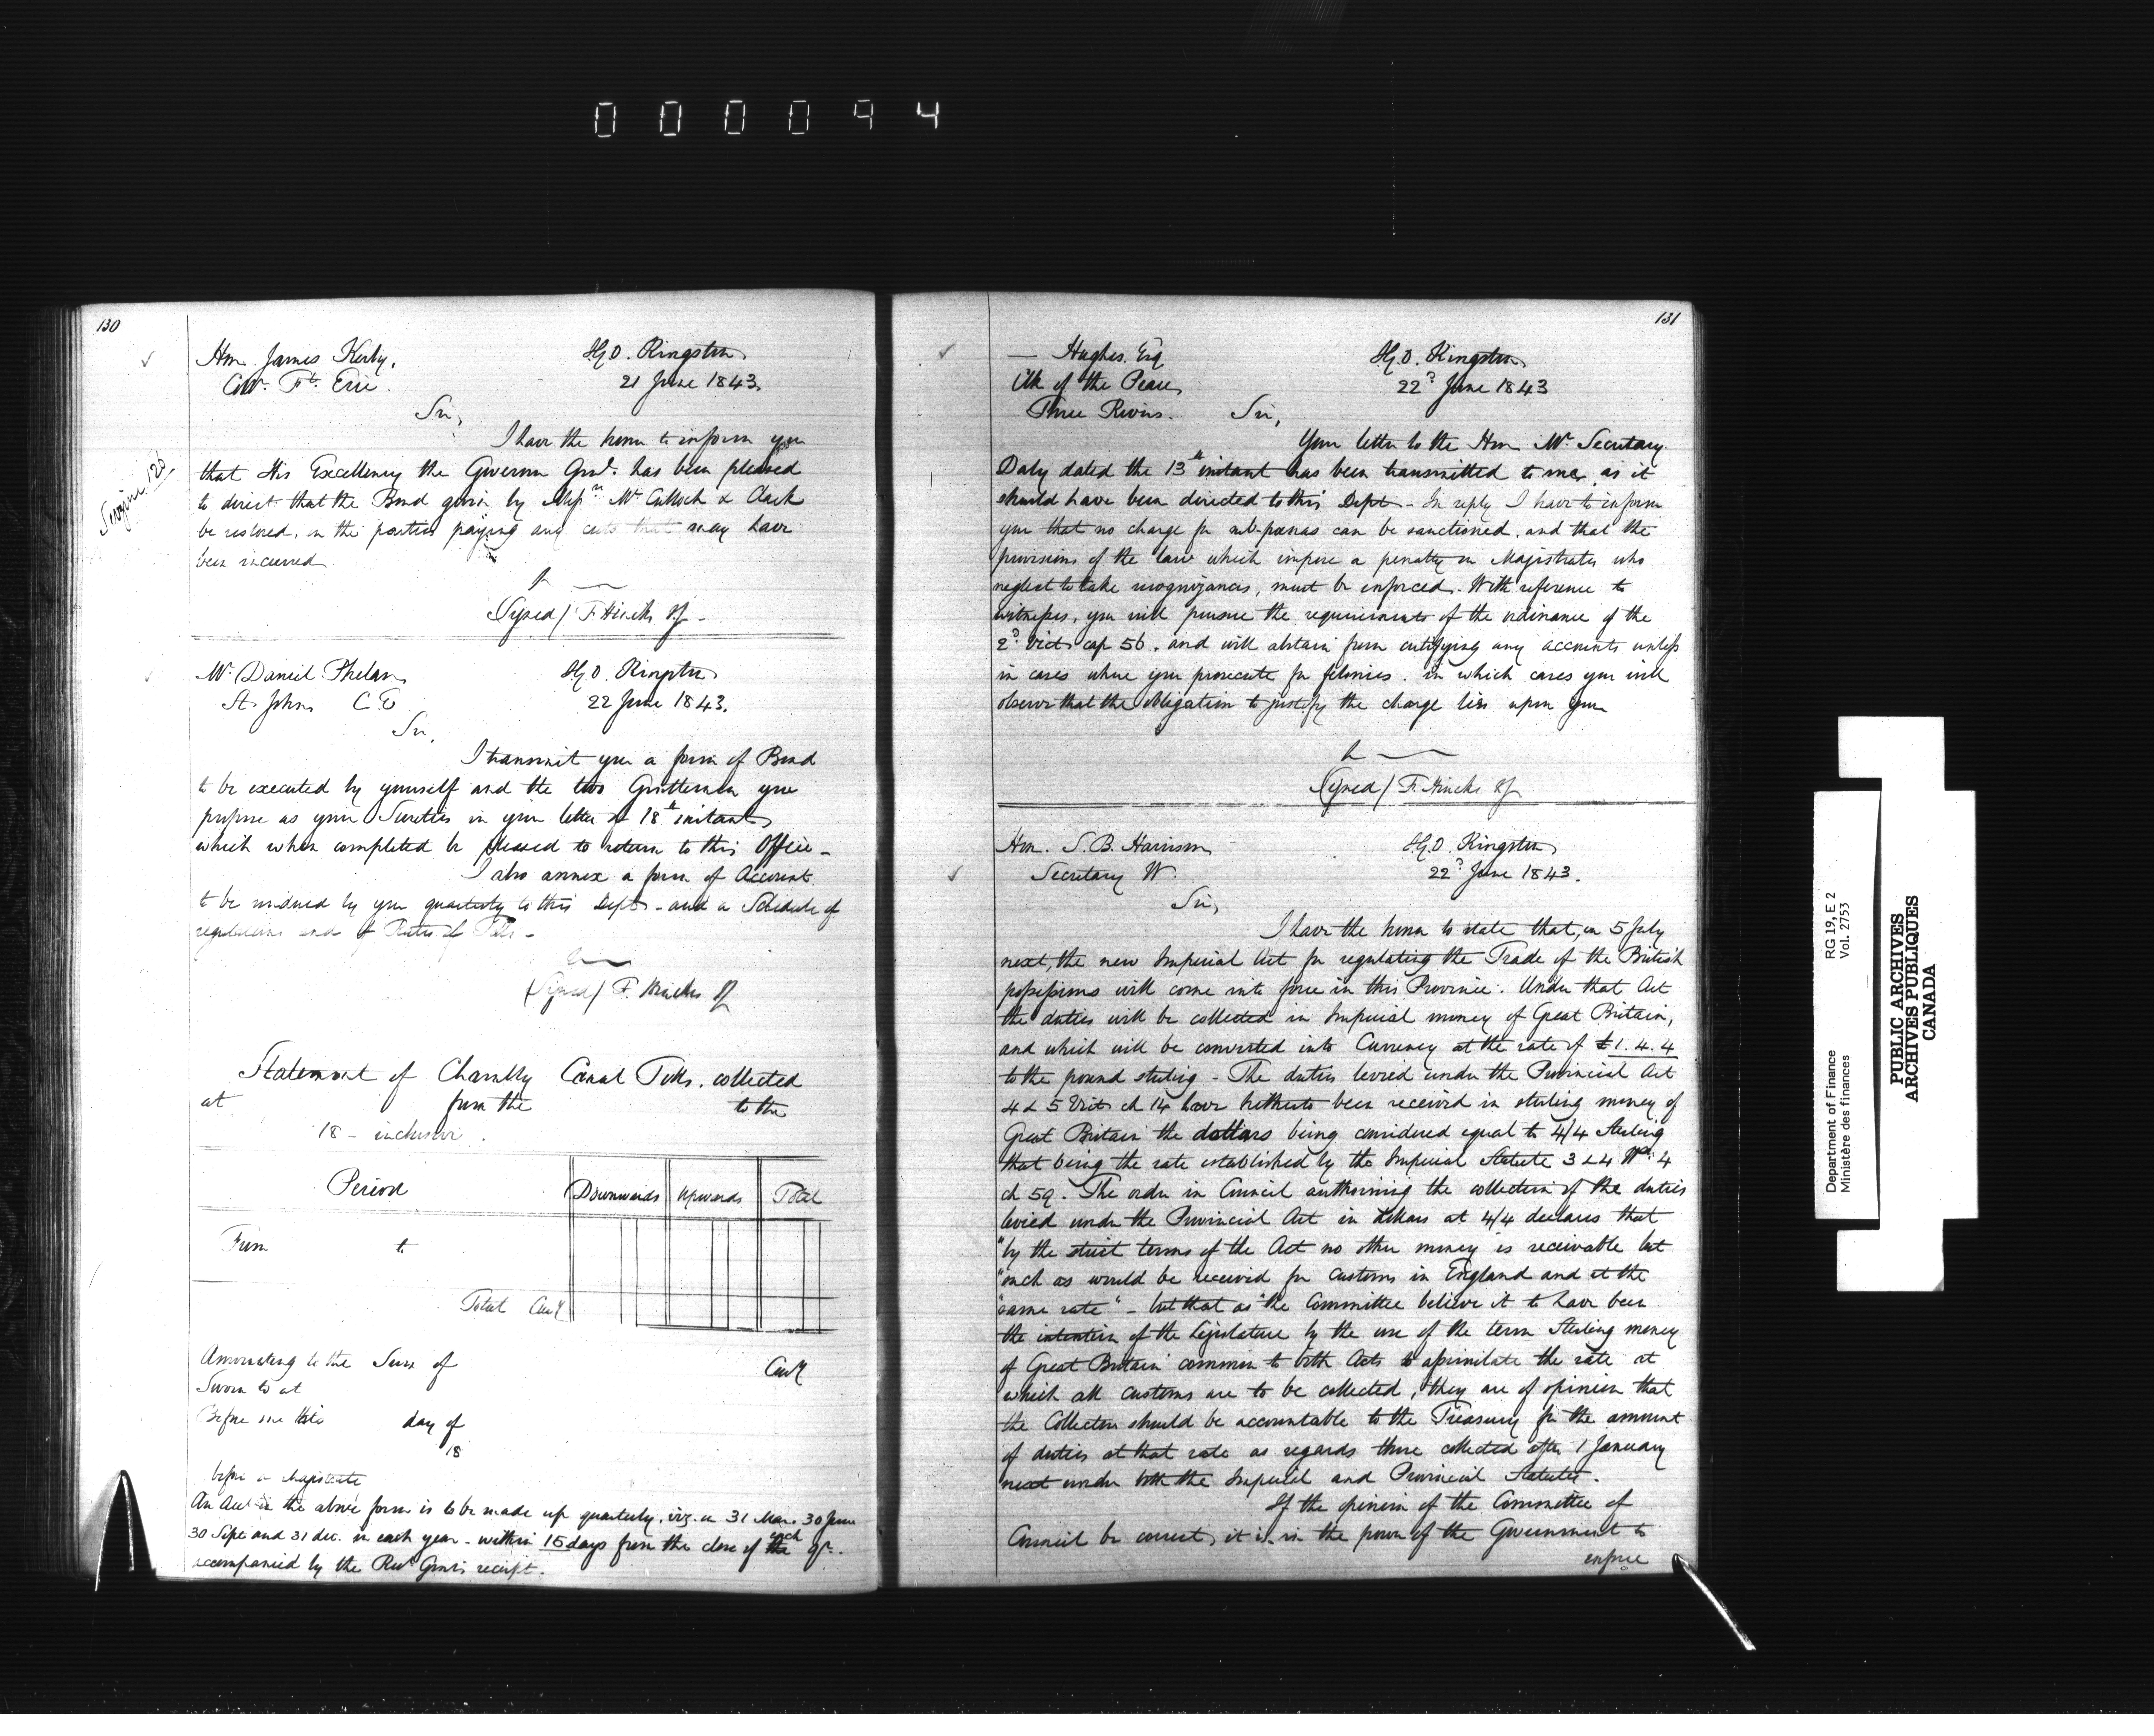 000094
130
Hon. James Kerby,
Colr. Ft. Erie.
I.G.O. Kingston
21 June 1843.
Sir,
I have the honor to inform you
that His Excellency the Governor Genl. has been pleased
to direct that the Bond given by Messrs. McCulloch & Clark
be restored, on the parties paying any costs that may have
been incurred
Signed / F. Hincks I.G.
Mr. Daniel Phelan
St. Johns C.E.
I.G.O. Kingston
22 June 1843.
Sir,
I transmit you a form of Bond
to be executed by yourself and the two Gentlemen you
propose as your Sureties in your letter of 18th instant,
which when completed be pleased to return to this Office -
I also annex a form of Account
to be rendered by you quarterly to this Dept. - and a Schedule of
regulations and of Rates of Tolls -
(Signed) F. Hincks I.G.
Statement of Chambly Canal Tolls, collected
at from the to the
18 - inclusive.
Period Downwards Upwards Total
From to
Total Cury
Amounting to the Sum of Cury
Sworn to at
Before me this day of
18
before a Magistrate
An Acct in the above form is to be made up quarterly, viz. on 31 Mar. 30 June
30 Sept and 31 dec. in each year - within 15 days from the close of the each qr.
accompanied by the Recr. Genl's receipt.
131
— Hughes Esq
Clk of the Peace,
Three Rivers.
I.G.O. Kingston
22d June 1843
Sir,
Your letter to the Hon Mr. Secretary
Daly dated the 13th instant has been transmitted to me, as it
should have been directed to this Dept - In reply I have to inform
you that no charge for sub-poenas can be sanctioned, and that the
provisions of the law which impose a penalty on Magistrates who
neglect to take recognizances, must be enforced. With reference to
witnesses, you will pursue the requirements of the ordinance of the
2d. Vict cap 56, and will abstain from certifying any accounts unless
in cases where you prosecute for felonies. in which cases you will
observe that the obligation to justify the charge lies upon you
Signed / F. Hincks I.G.
Hon. S. B. Harrison
Secretary W.
I.G.O. Kingston
22d June 1843.
Sir,
I have the honor to state that, on 5 July
next, the new Imperial Act for regulating the Trade of the British
possessions will come into force in this Province. Under that Act
the duties will be collected in Imperial money of Great Britain,
and which will be converted into Currency at the rate of £1.4.4
to the pound sterling - The duties levied under the Provincial Act
4 & 5 Vict ch 14 have hitherto been received in sterling money of
Great Britain the dollars being considered equal to 4/4 Sterling
that being the rate established by the Imperial Statute 3 & 4 Wm. 4
ch 59. The order in Council authorising the collection of the duties
levied under the Provincial Act in dollars at 4/4 declares that
"by the strict terms of the Act no other money is receivable but
"such as would be received for Customs in England and at the
"same rate" - but that as "the Committee believe it to have been
the intention of the Legislature by the use of the term Sterling money
of Great Britain common to both Acts to assimilate the rate at
which all customs are to be collected, they are of opinion that
the Collectors should be accountable to the Treasury for the amount
of duties at that rate as regards those collected after 1 January
next under both the Imperial and Provincial Statutes.
If the opinion of the Committee of
Council be correct, it is in the power of the Government to
enforce
Department of Finance RG 19, E 2
Ministère des finances Vol. 2753
PUBLIC ARCHIVES
ARCHIVES PUBLIQUES
CANADA